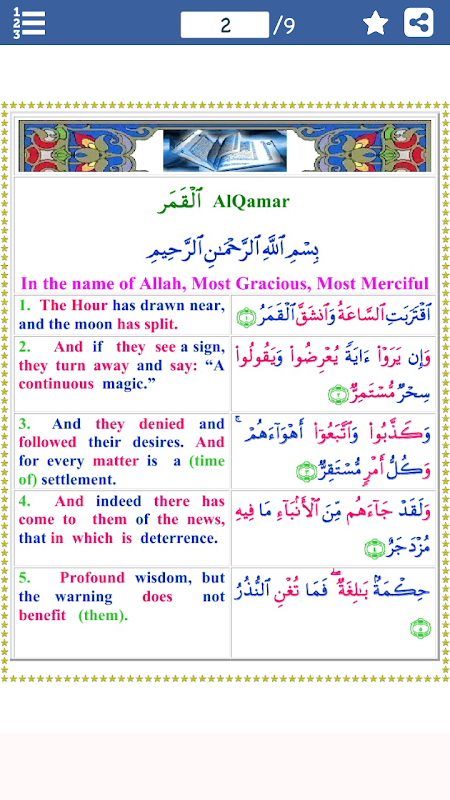 1
2
3
2 /9
ٱلْقَمَر AlQamar
بِسْمِ ٱللَّهِ ٱلرَّحْمَـٰنِ ٱلرَّحِيمِ
In the name of Allah, Most Gracious, Most Merciful
1. The Hour has drawn near,
and the moon has split.
ٱقْتَرَبَتِ ٱلسَّاعَةُ وَٱنشَقَّ ٱلْقَمَرُ ١
2. And if they see a sign,
they turn away and say: “A
continuous magic.”
وَإِن يَرَوْا۟ ءَايَةً يُعْرِضُوا۟ وَيَقُولُوا۟
سِحْرٌ مُّسْتَمِرٌّ ٢
3. And they denied and
followed their desires. And
for every matter is a (time
of) settlement.
وَكَذَّبُوا۟ وَٱتَّبَعُوٓا۟ أَهْوَآءَهُمْ ۚ
وَكُلُّ أَمْرٍ مُّسْتَقِرٌّ ٣
4. And indeed there has
come to them of the news,
that in which is deterrence.
وَلَقَدْ جَآءَهُم مِّنَ ٱلْأَنۢبَآءِ مَا فِيهِ
مُزْدَجَرٌ ٤
5. Profound wisdom, but
the warning does not
benefit (them).
حِكْمَةٌۢ بَـٰلِغَةٌ ۖ فَمَا تُغْنِ ٱلنُّذُرُ
٥